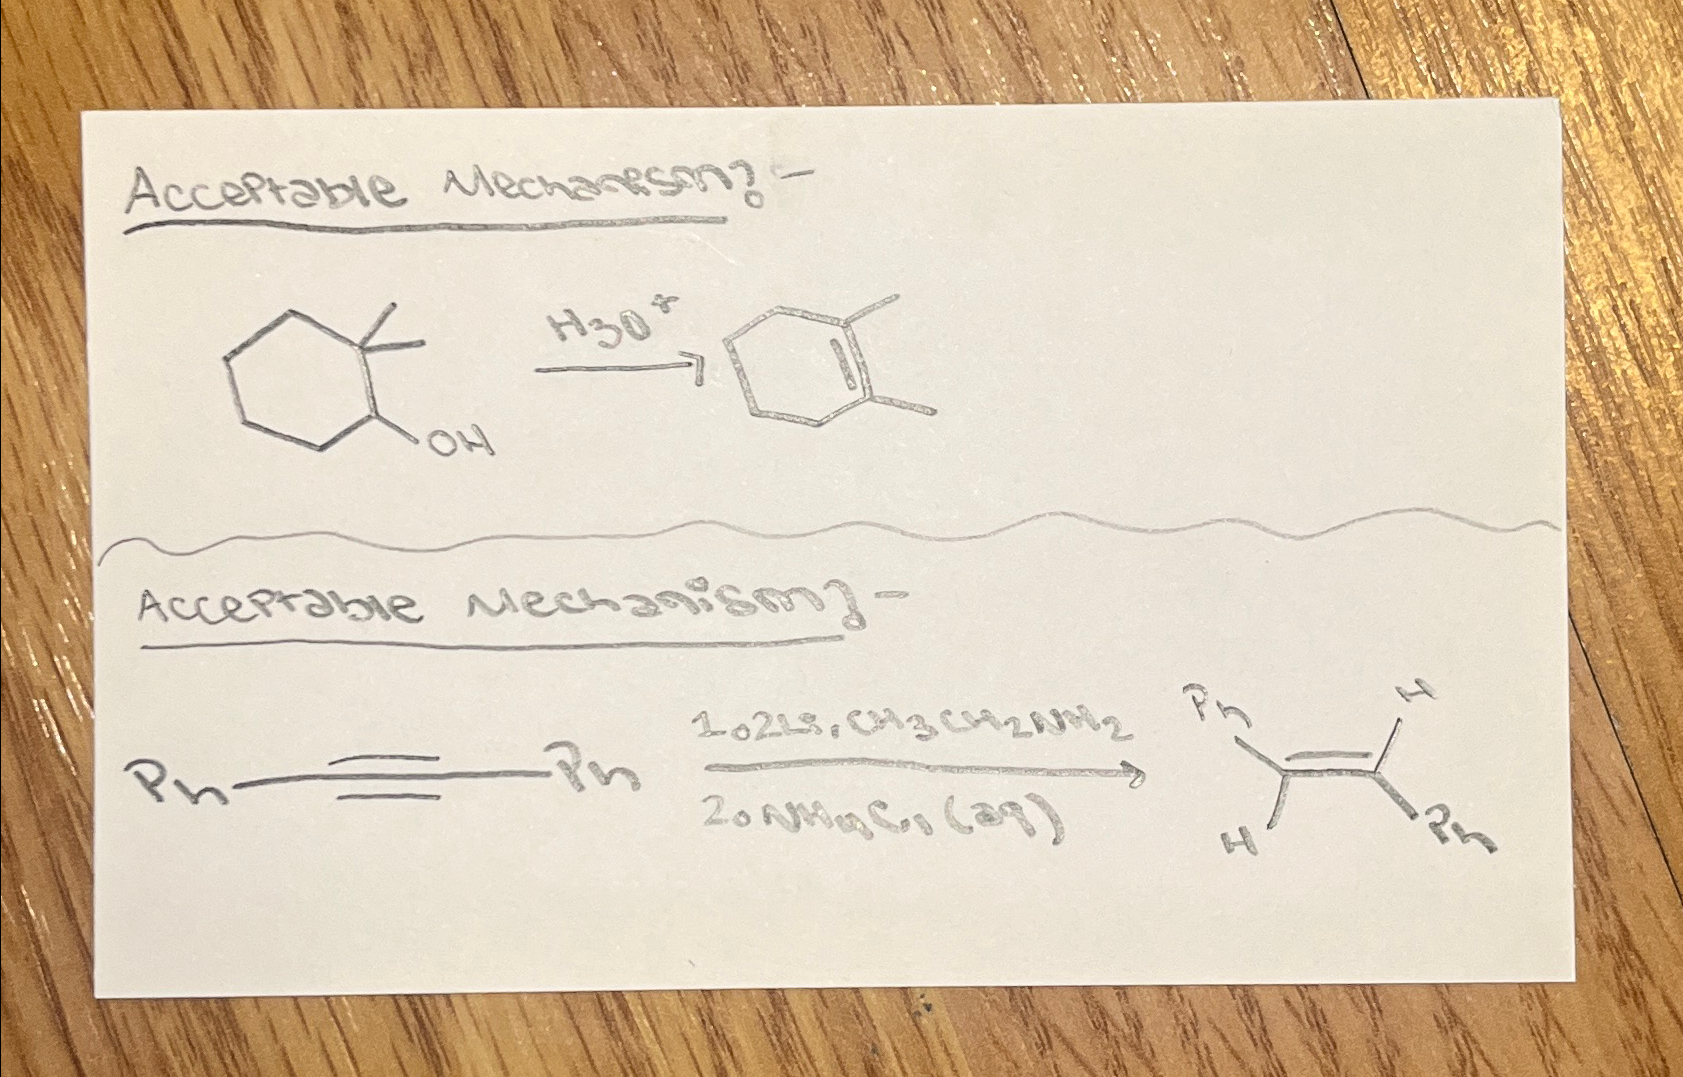 Acceptable Mechanism? -
H3O+
OH
Acceptable Mechanism? -
Ph Ph
1. 2Li, CH3CH2NH2
2. NH4Cl (aq)
Ph H
H Ph